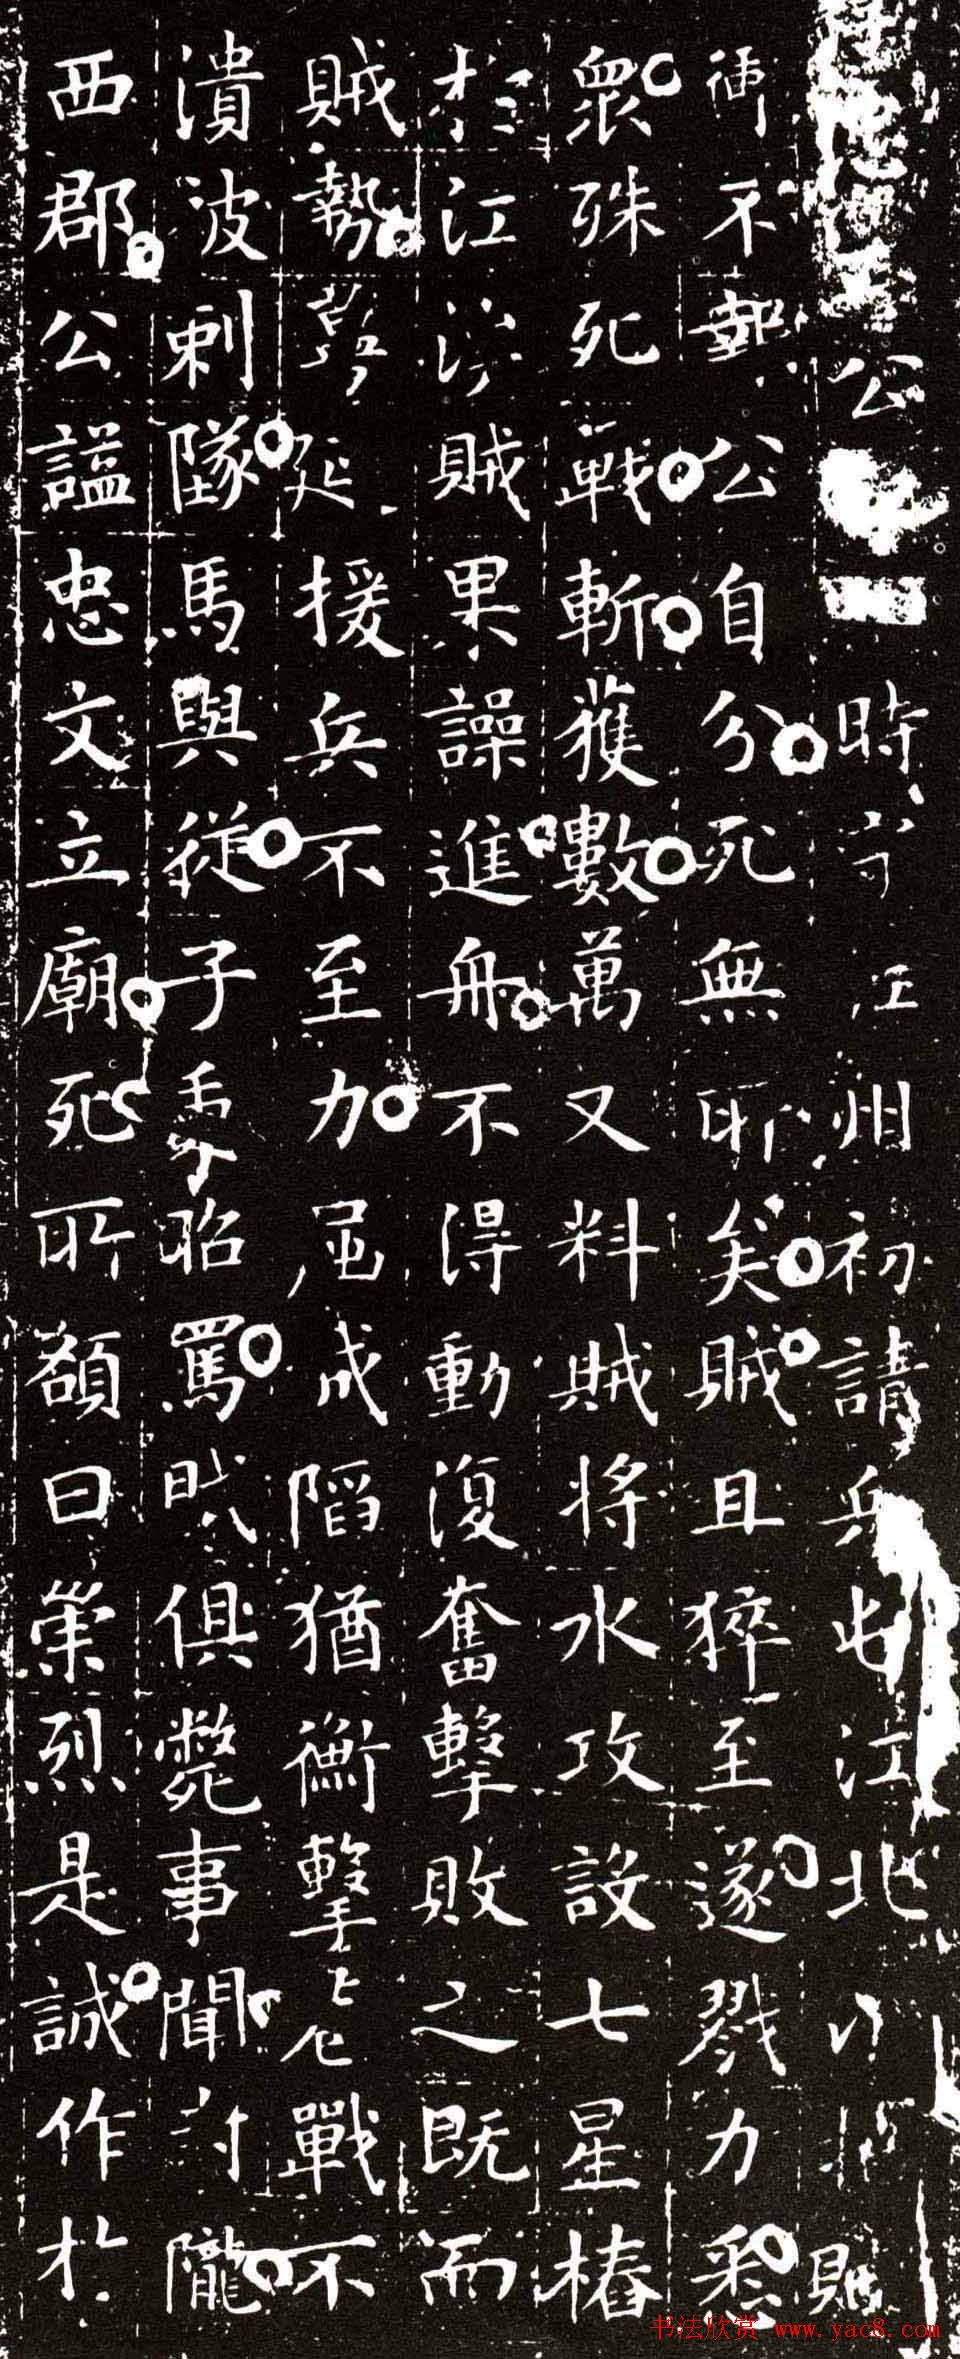 公時守江州初請兵屯江北
不公自分死無所矣賊且猝至遂戮力
眾殊死戰斬獲數萬又料賊將水攻設七星樁
於江賊果譟進舟不得動復奮擊敗之既而
賊勢延援兵不至力屈成陷猶衝擊戰不
潰波剌隊馬與從子秀昭罵賊俱斃事聞封隴
西郡公謚忠文立廟死所額曰榮烈是誠作於
书法欣赏 www.yac8.com